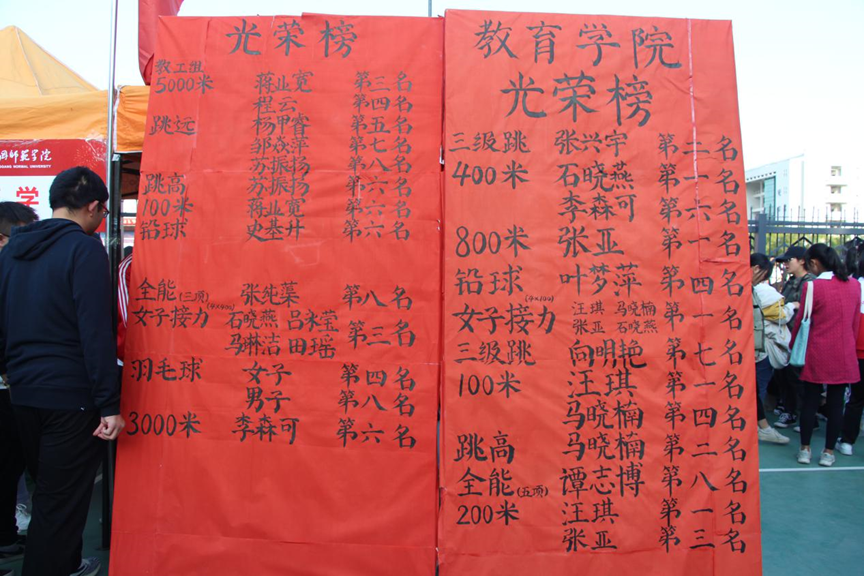 光荣榜
教工组
5000米 蒋业宽 第三名
程云 第四名
跳远 杨甲睿 第五名
邹茂萍 第七名
苏振扬 第八名
跳高 苏振扬 第六名
100米 蒋业宽 第六名
铅球 史基升 第六名
全能(三项) 张纯蕖 第八名
女子接力(4×400) 石晓燕 吕米莹
马琳洁 田瑶 第三名
羽毛球 女子 第四名
男子 第八名
3000米 李森可 第六名
教育学院
光荣榜
三级跳 张兴宇 第二名
400米 石晓燕 第一名
李森可 第六名
800米 张亚 第一名
铅球 叶梦萍 第四名
女子接力(4×100) 汪琪 马晓楠 第一名
张亚 石晓燕
三级跳 向明艳 第七名
100米 汪琪 第一名
马晓楠 第四名
跳高 马晓楠 第二名
全能(五项) 谭志博 第八名
200米 汪琪 第一名
张亚 第三名
师范学院
学